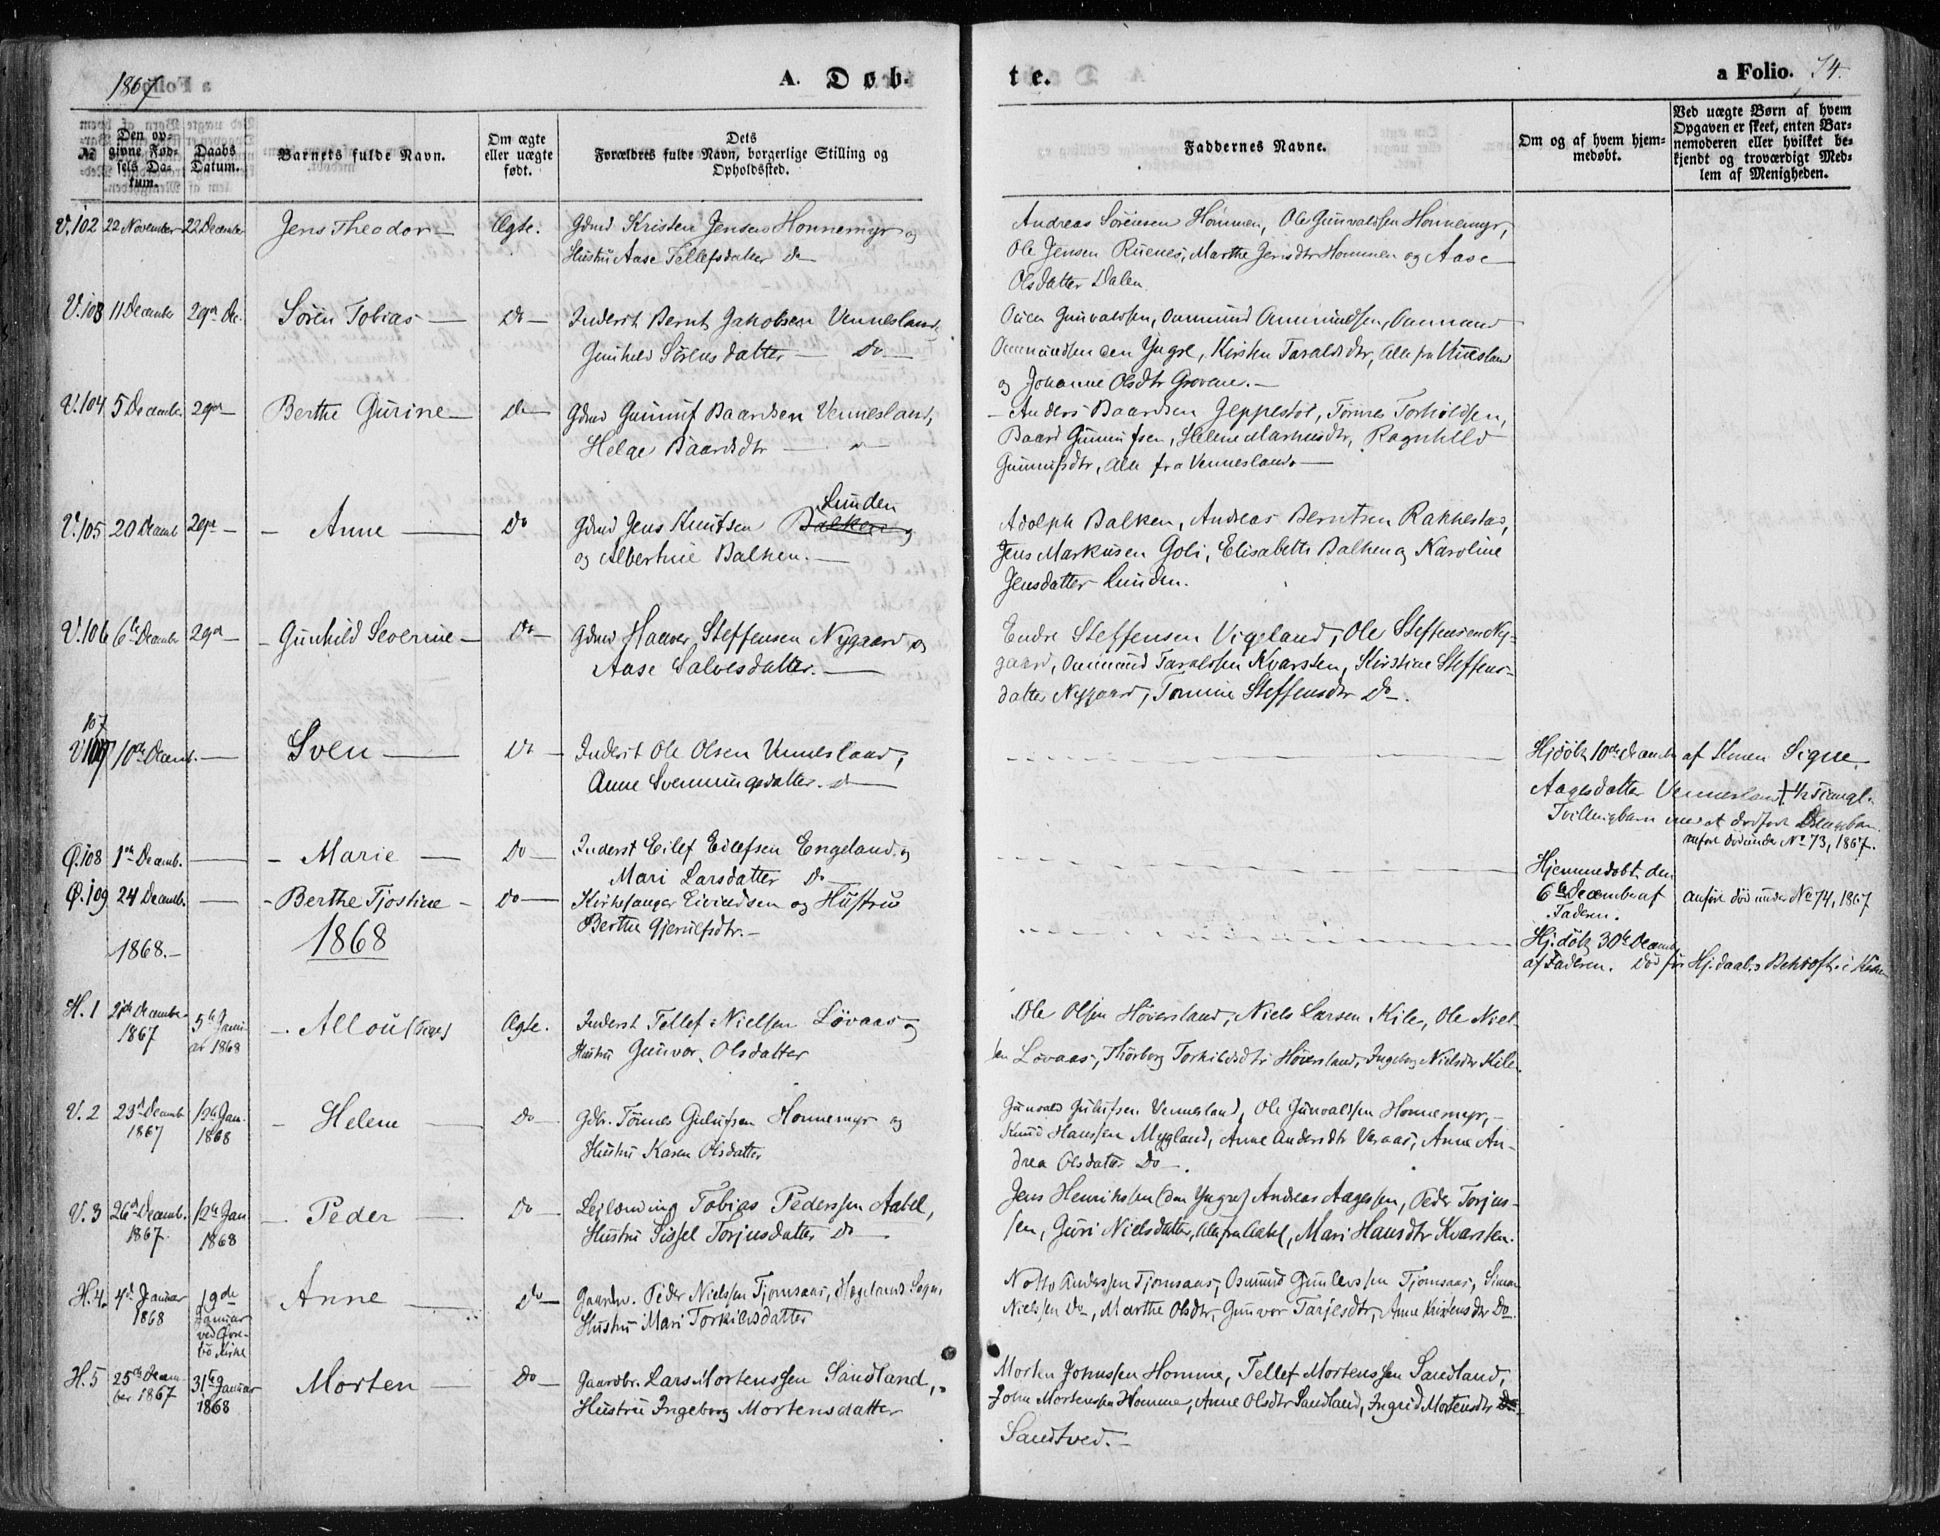 1867
A. Døb-
te.
a Folio. 74.
№
Den op-
givne Fød-
sels Da-
tum.
Daabs
Datum.
Barnets fulde Navn.
Om ægte
eller uægte
født.
Dets
Forældres fulde Navn, borgerlige Stilling og
Opholdssted.
Faddernes Navne.
Om og af hvem hjem-
medøbt.
Ved uægte Børn af hvem
Opgaven er skeet, enten Bar-
nemoderen eller hvilket be-
kjendt og troværdigt Med-
lem af Menigheden.
V.102 22 November 22 December Jens Theodor — Ægte. Gdmd Kristen Jensen Honnemyr og
Hustru Aase Tellefsdatter Do
Andreas Sørensen Hommen, Ole Gunvaldsen Honnemyr,
Ole Jensen Ruenes, Marthe Jensdtr Hommen og Aase
Olsdatter Dalen
V.103 11 December Søren Tobias — Do — Inderst Bernt Jakobsen Vennesland,
Gunhild Sørensdatter — Do. —
Gunvaldsen, Aanmund
den Yngre, Kirsten Taraldsdtr, Alle fra Vennesland
og Johanne Olsdtr Grovene. —
V.104 5 Decembr. Berthe Gurine — Do — Gdmd Gunnuf Baardsen Vennesland,
Helge Baardsdtr —
— Anders Baardsen Jeppestøl, Tønnes
Baard Gunnufsen, Helene Markusdtr, Ragnhild
Gunnufsdtr, Alle fra Vennesland. —
V.105 20 Decemb — Anne — Do Gdmd Jens Knutsen Balken Lunden
og Albertine Balken. —
Adolph Balken, Andreas Berntsen Rakkestad,
Jens Markusen Goli, Elisabeth Balken og Karoline
Jensdatter Lunden.
V.106 6te Decembr — Gunhild Severine — Do — Gdmd Haaver Steffensen Nygaard og
Aase Salvesdatter. —
Endre Steffensen Vigeland, Ole Steffensen Ny-
gaard, Aanmund Taraldsen Kvarsten, Kirstine Steffens-
datter Nygaard, Tomine Steffensdtr Do —.
107
V.107 10de Decemb. — Sven — Do — Inderst Ole Olsen Vennesland,
Anne Svenningsdatter. Do
Hjdøbt 10de Decembr af Konen Signe
Aagesdatter Vennesland
Tvillingbarn med et dødfødt
anført død under No 73, 1867.
Ø.108 1ste Decemb. — — Marie — Do — Inderst Eilef Eilefsen Engeland og
Mari Larsdatter Do —
Hjemmedøbt den
6te December af
Faderen.
anført død under No 74, 1867
Ø.109 24 Decemb. — — Berthe Tjostine — Do — Kirkesanger Eivindsen og Hustru
Berthe Gjerulfsdtr. —
Hjdøbt 30te Decemb
af Faderen. Død før Hj.daabs Bekræft. i Kirken
1868. —
1868
H. 1 Decembr
1867
5te Janu-
ar 1868
— Allou (Pige) Ægte. Inderst Tellef Nielsen Løvaas og
Hustru Gunvor Olsdatter
Ole Olsen Høversland, Niels Larsen Kile, Ole Niel-
sen Løvaas, Thorborg Torkildsdtr Høversland, Ingeborg Nielsdtr Kile.
V. 2 23de Decemb
1867
12te Jan.
1868
— Helene — Do — Gdbr. Tønnes Gulufsen Honnemyr og
Hustru Karen Olsdatter
Gunvald Gulufsen Vennesland, Ole Gunvaldsen Honnemyr, —
Knud Hanssen Mygland, Anne Andersdtr Veraas, Anne An-
drea Olsdatter Do —.
V. 3 26de Decemb.
1867.
12te Jan
1868
— Peder — Do — Leilænding Tobias Pederssen Aabel,
Hustru Sissel Torjusdatter Do —
Jens Henrikssen (den Yngre) Andreas Aagessen, Peder Torjus-
sen, Guri Nielsdatter, Alle fra Aabel, Mari Hansdtr Kvarsten.
H. 4. 4de Januar
1868
19de
Januar
ved Øvre-
bø Kirke
Anne — Do — Gaardm. Peder Nielssen Tjomsaas, Hægelands Sogn,
Hustru Mari Torkildsdatter
Notto Anderssen Tjomsaas, Osmund Gunlerssen Tjomsaas, Simon
Nielssen Do —, Marthe Olsdtr, Gunvor Tarjesdtr, Anne Kristensdtr Do.
H. 5 25de Decem-
ber 1867
31te Januar
1868
Morten — Do — Gaardbr. Lars Mortenssen Sandland,
Hustru Ingeborg Mortensdatter
Morten Johnssen Homme, Tellef Mortenssen Sandland,
John Mortenssen Homme, Anne Olsdtr Sandland, Ingrid Mortensdtr Do
Sandtved. —